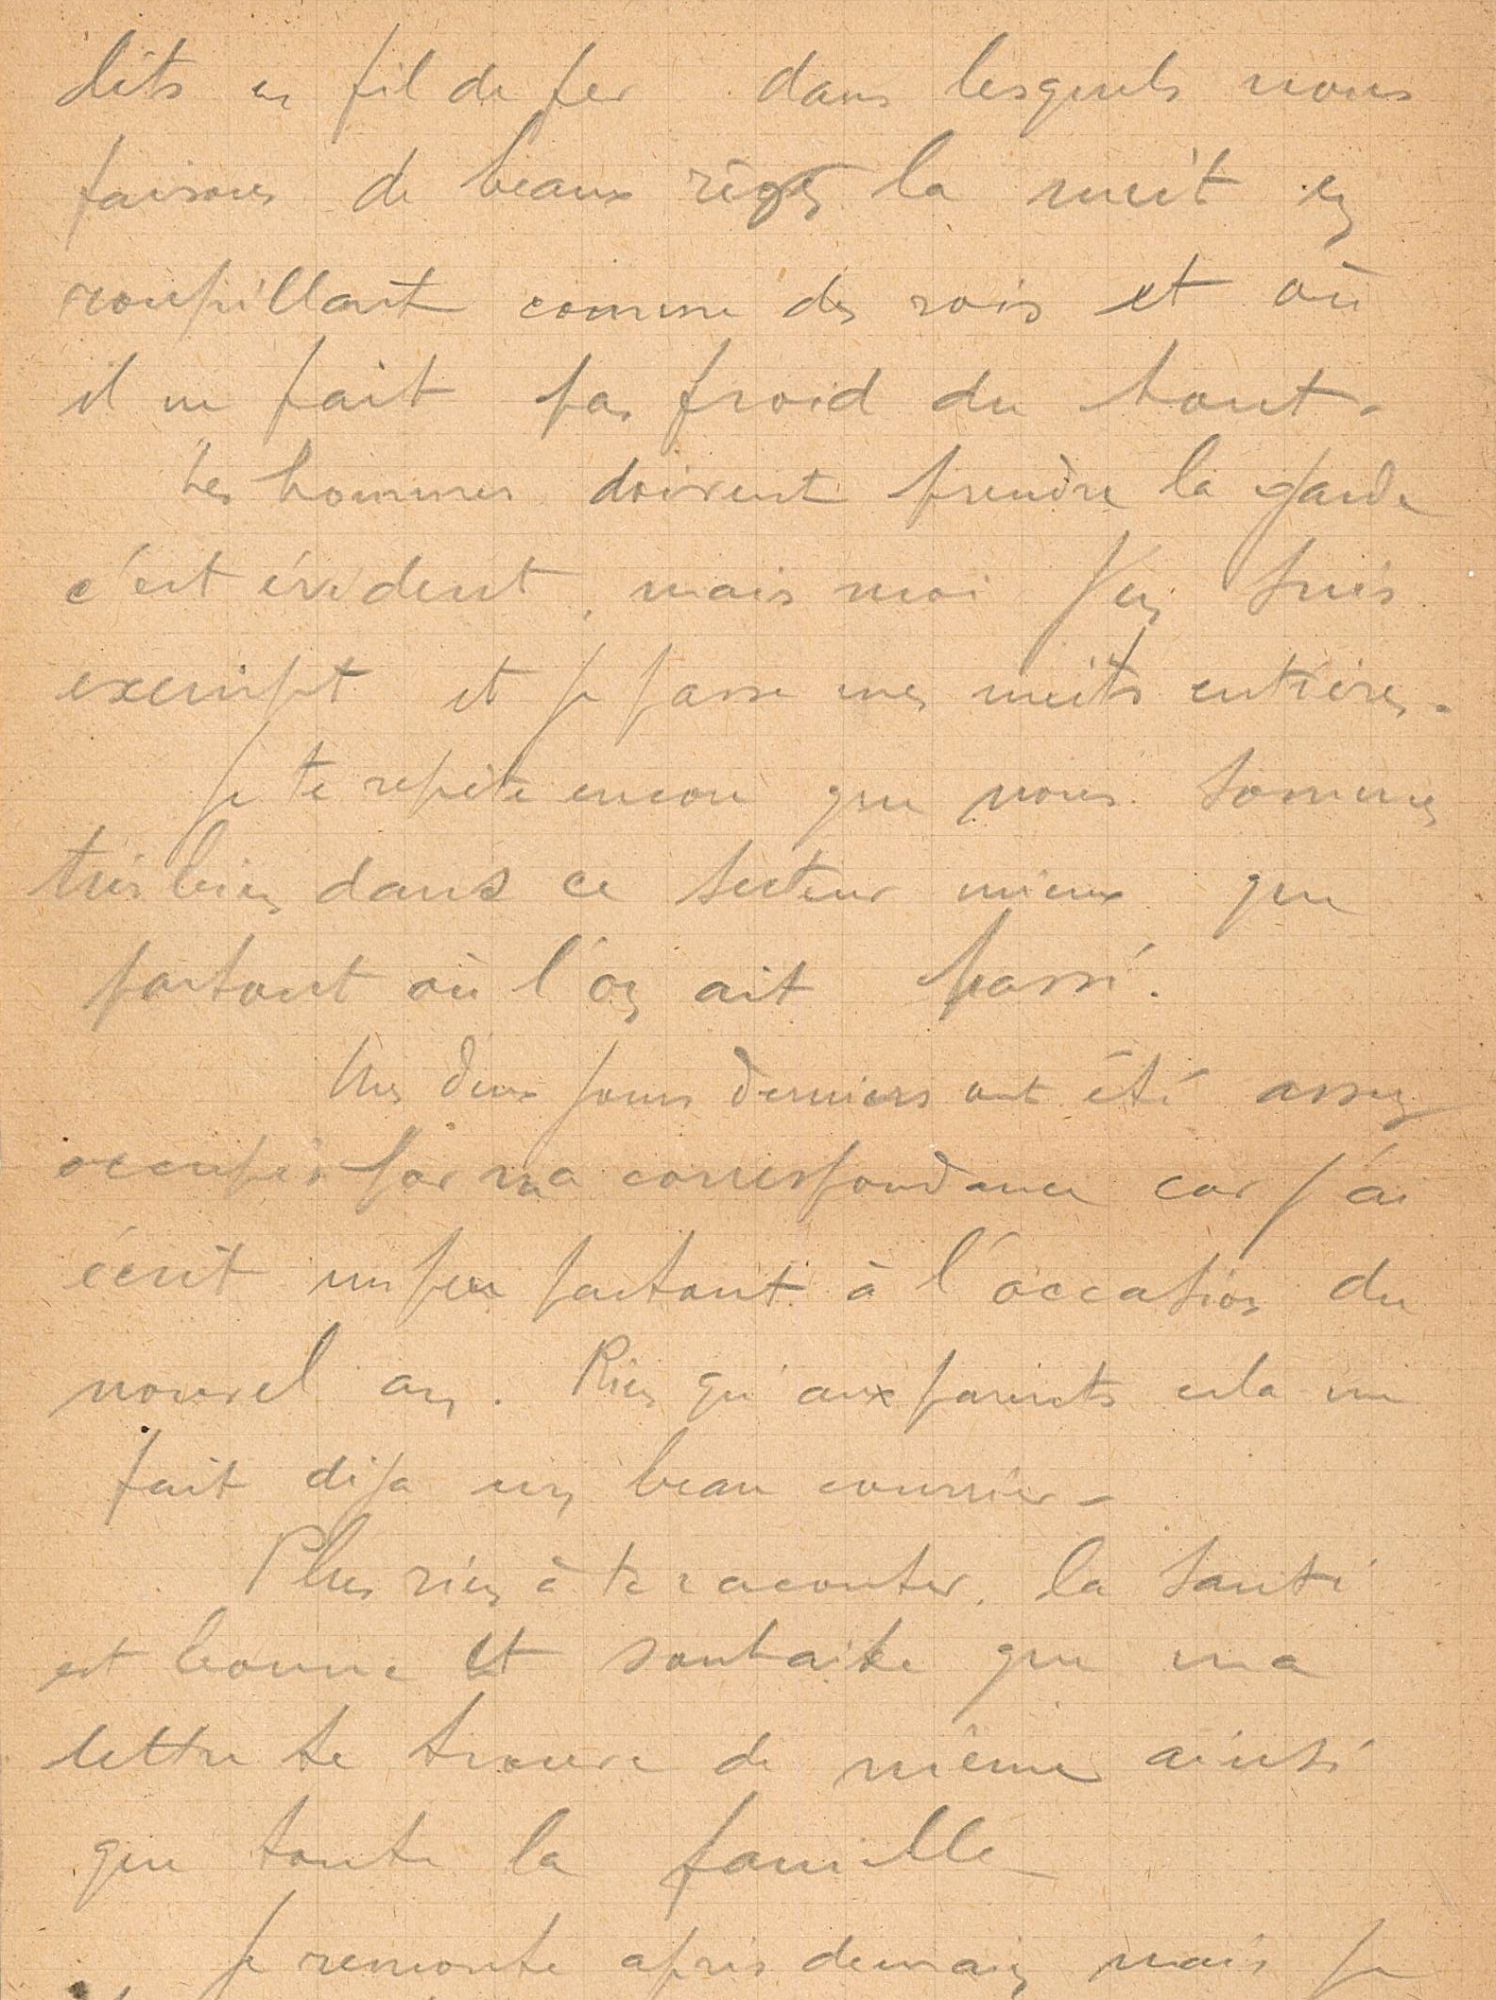 lits en fil de fer dans lesquels nous
faisons de beaux rêves la nuit en
roupillant comme des rois et où
il ne fait pas froid du tout.
Les hommes doivent prendre la garde
c'est évident, mais moi j'en suis
exempt et je passe mes nuits entières.
Je te repète encore que nous sommes
très bien dans ce secteur mieux que
partout où l'on ait passé.
Mes deux jours derniers ont été assez
occupés par ma correspondance car j'ai
écrit un peu partout à l'occasion du
nouvel an. Rien qu'aux parents cela me
fait déja un beau courrier.
Plus rien à te raconter. la santé
est bonne et souhaite que ma
lettre te trouve de même ainsi
que toute la famille
Je remonte après demain mais je